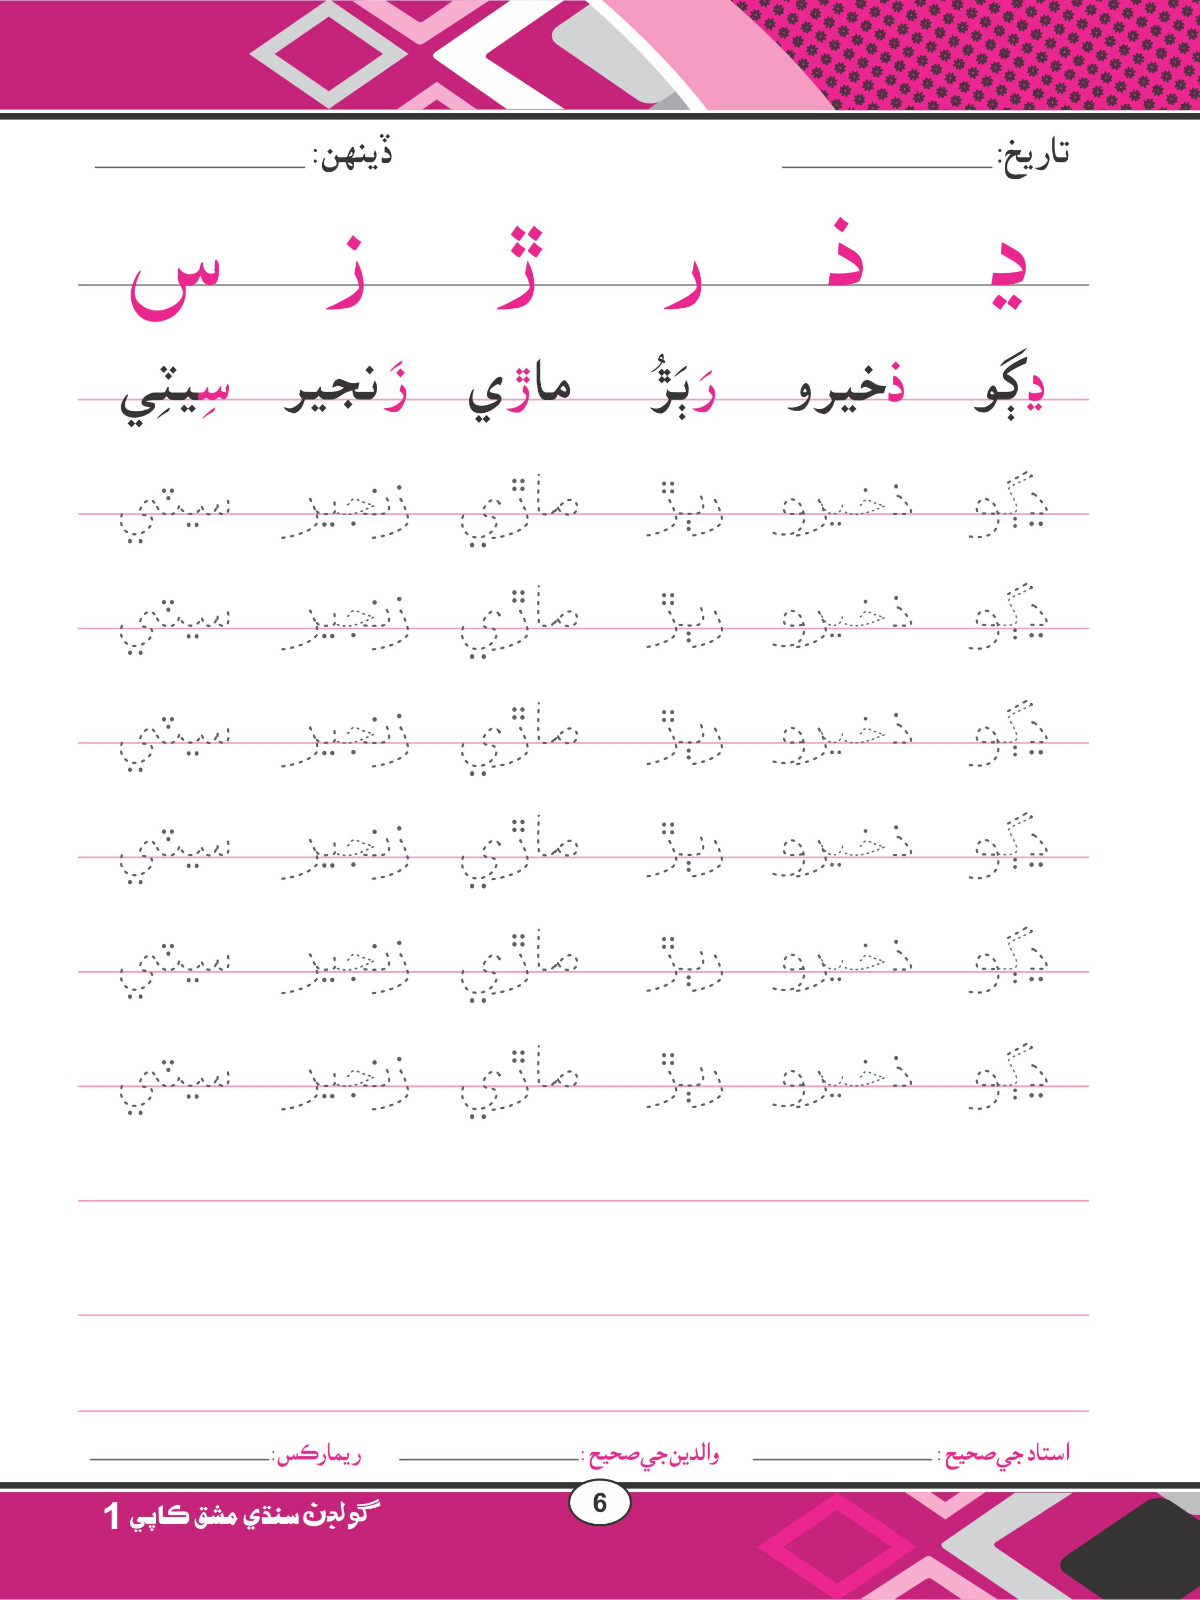 تاريخ: ڏينهن:
ڍ ذ ر ڙ ز س
ڍڳو ذخيرو رَٻَڙُ ماڙي زَنجير سِيٽِي
ڍڳو ذخيرو رٻڙ ماڙي زنجير سيٽي
ڍڳو ذخيرو رٻڙ ماڙي زنجير سيٽي
ڍڳو ذخيرو رٻڙ ماڙي زنجير سيٽي
ڍڳو ذخيرو رٻڙ ماڙي زنجير سيٽي
ڍڳو ذخيرو رٻڙ ماڙي زنجير سيٽي
ڍڳو ذخيرو رٻڙ ماڙي زنجير سيٽي
استاد جي صحيح : والدين جي صحيح : ريمارڪس :
6
گولڊن سنڌي مشق ڪاپي 1